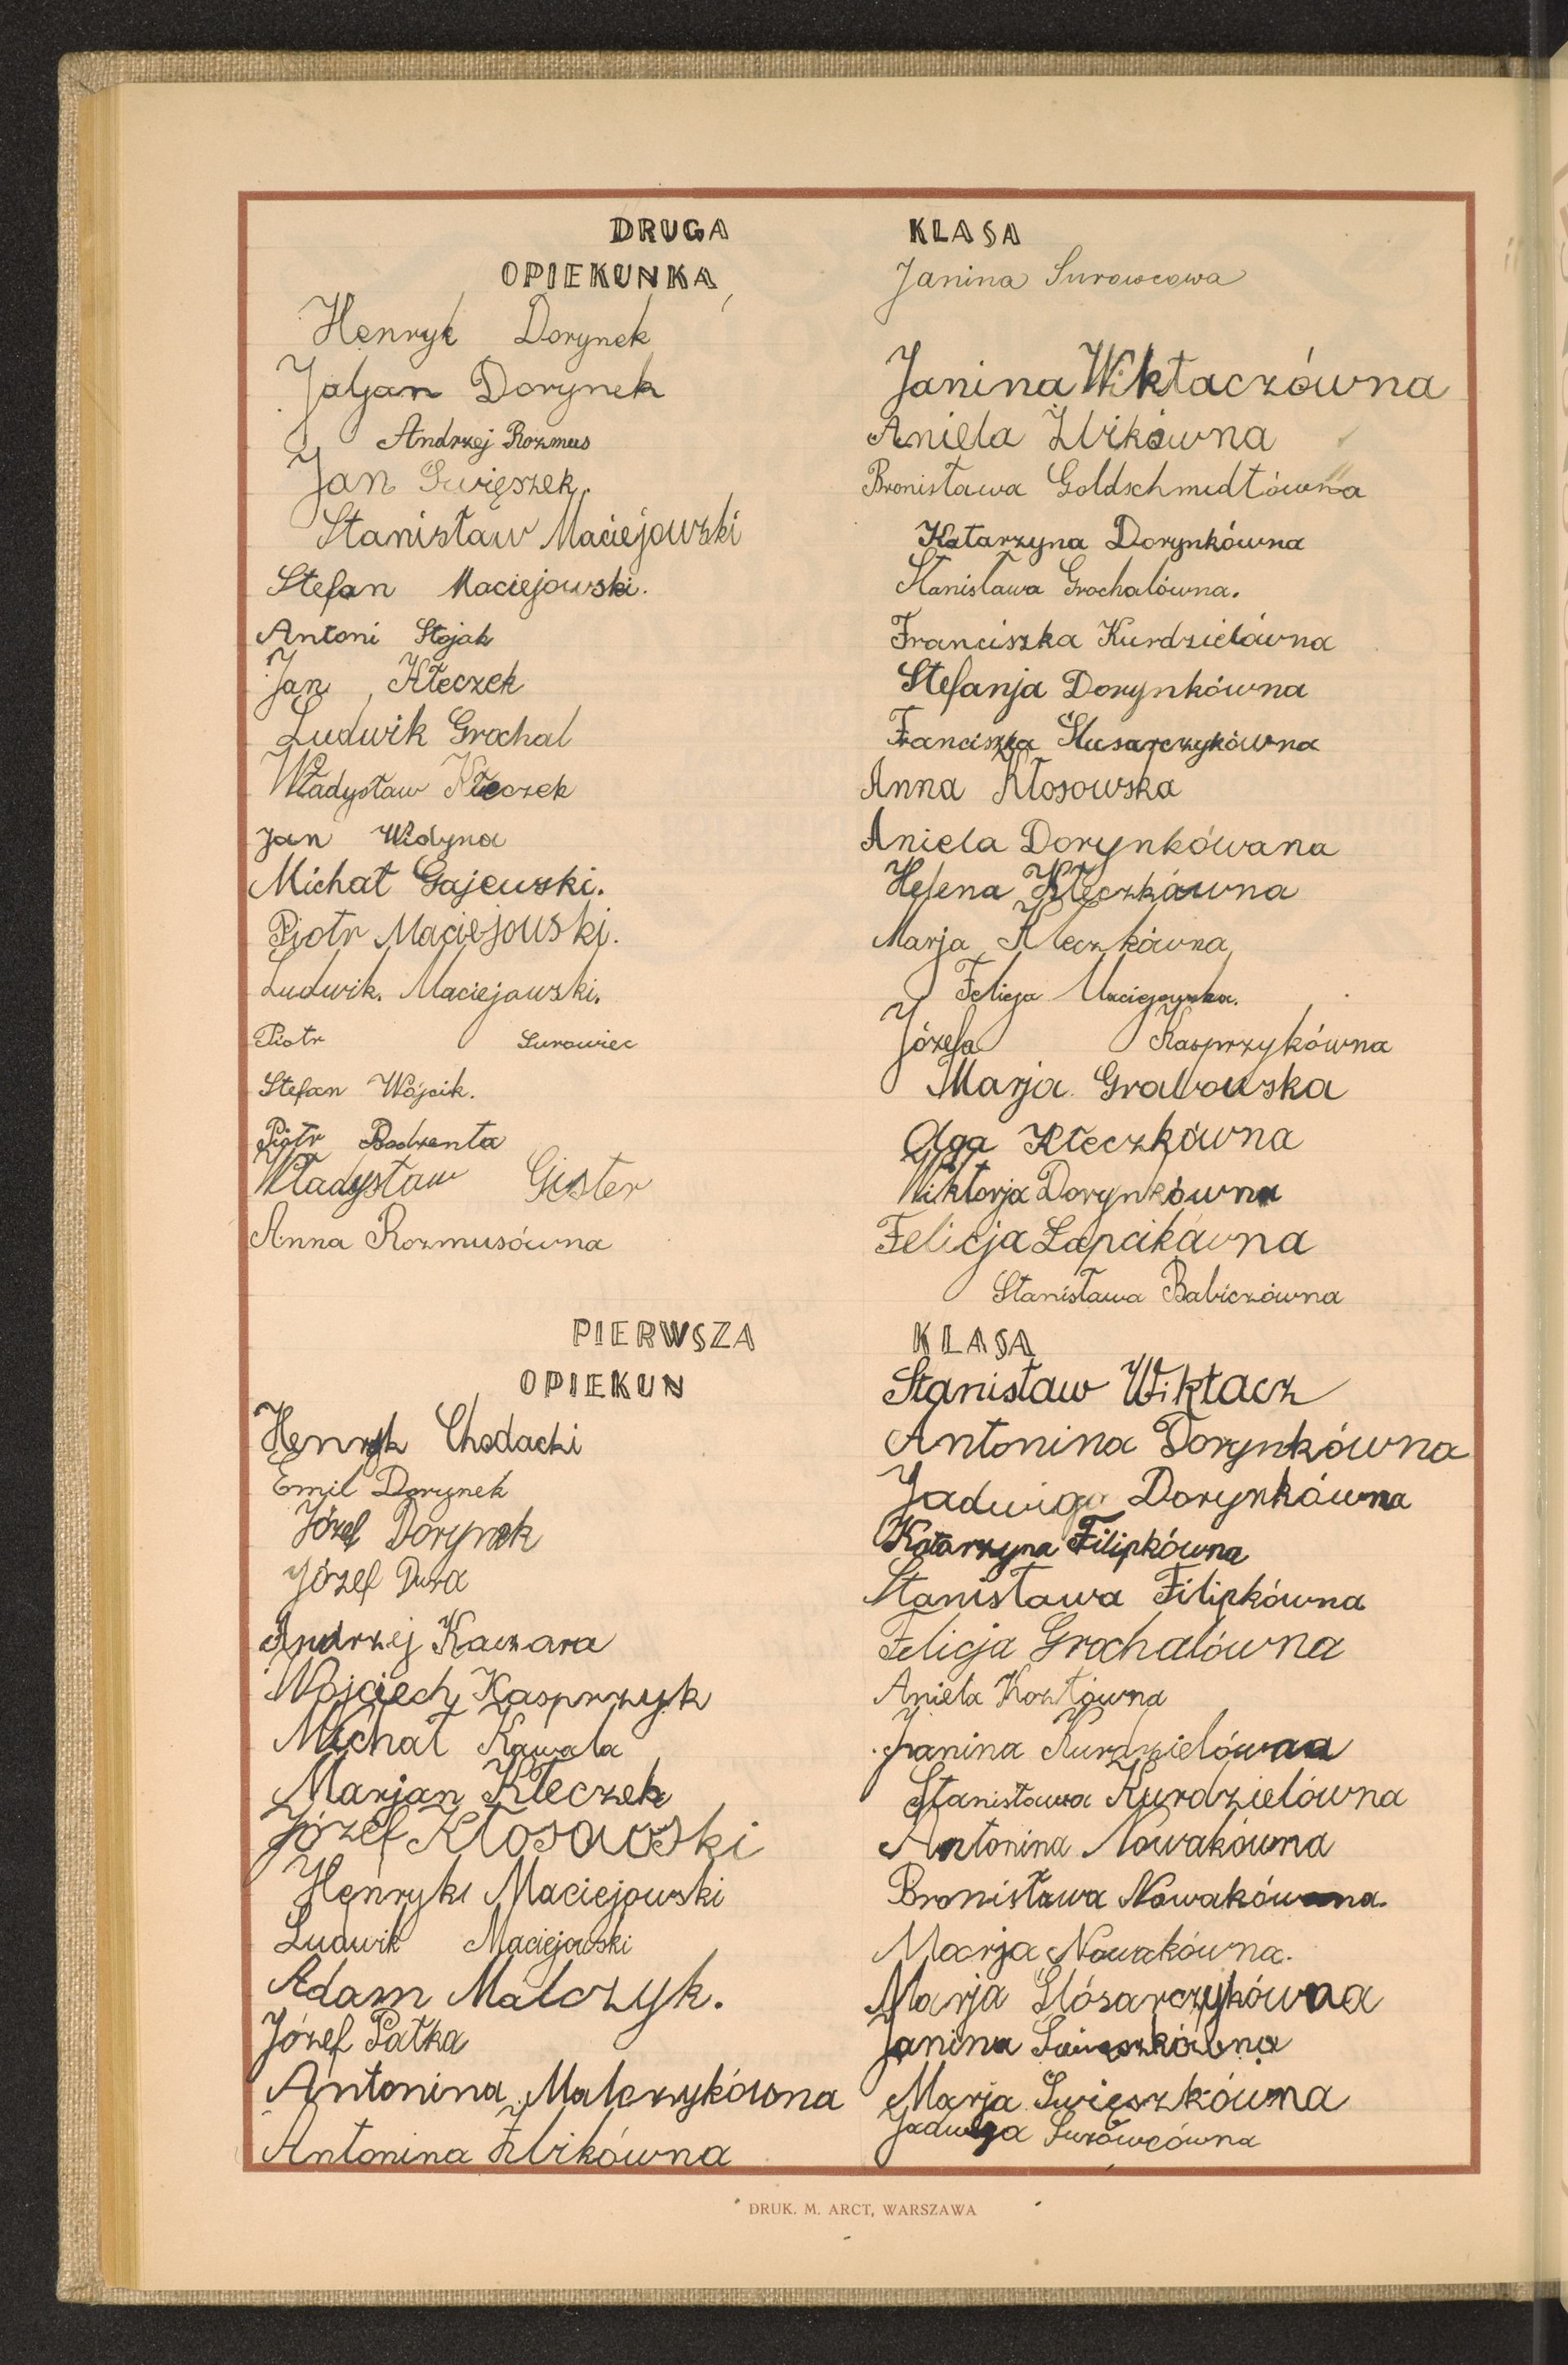 DRUGA KLASA
OPIEKUNKA Janina Surowcowa
Henryk Dorynek
Jaljan Dorynek
Andrzej Rozmus
Jan Swięszek.
Stanisław Maciejowski
Stefan Maciejowski.
Antoni Stojak
Jan Kłeczek
Ludwik Grochal
Władysław Kłeczek
Jan Widyna
Michał Gajewski.
Piotr Maciejowski.
Ludwik. Maciejowski.
Piotr Surowiec
Stefan Wójcik.
Piotr Bodzenta
Władysław Gister
Anna Rozmusówna
Janina Wiktaczówna
Aniela Żbikówna
Bronisława Goldschmidtówna
Katarzyna Dorynkówna
Stanisława Grochalówna.
Franciszka Kurdzielówna
Stefanja Dorynkówna
Franciszka Slusarczykówna
Anna Kłosowska
Aniela Dorynkówana
Helena Kłeczkówna
Marja Kleczkówna
Felicja Maciejowska.
Józefa Kasprzykówna
Marja Grabowska
Olga Kłeczkówna
Wiktorja Dorynkówna
Felicja Łapcikówna
Stanisława Babiczówna
PIERWSZA KLASA
OPIEKUN Stanisław Wiktacz
Henryk Chodacki
Emil Dorynek
Józef Dorynek
Józef Dura
Andrzej Kaczara
Wojciech Kasprzyk
Michał Kawala
Marjan Kłeczek
Józef Kłosowski
Henryk Maciejowski
Ludwik Maciejowski
Adam Malczyk.
Józef Pałka
Antonina Malczykówna
Antonina Żbikówna
Antonina Dorynkówna
Jadwiga Dorynkówna
Katarzyna Filipkówna
Stanisława Filipkówna
Felicja Grochalówna
Aniela Kozłówna
Janina Kurdzielówna
Stanisława Kurdzielówna
Antonina Nowakówna
Bronisława Nowakówna.
Marja Nowakówna.
Marja Slósarczykówna
Janina Swięszkówna
Marja Swięszkówna
Jadwiga Surówcówna
DRUK. M. ARCT, WARSZAWA